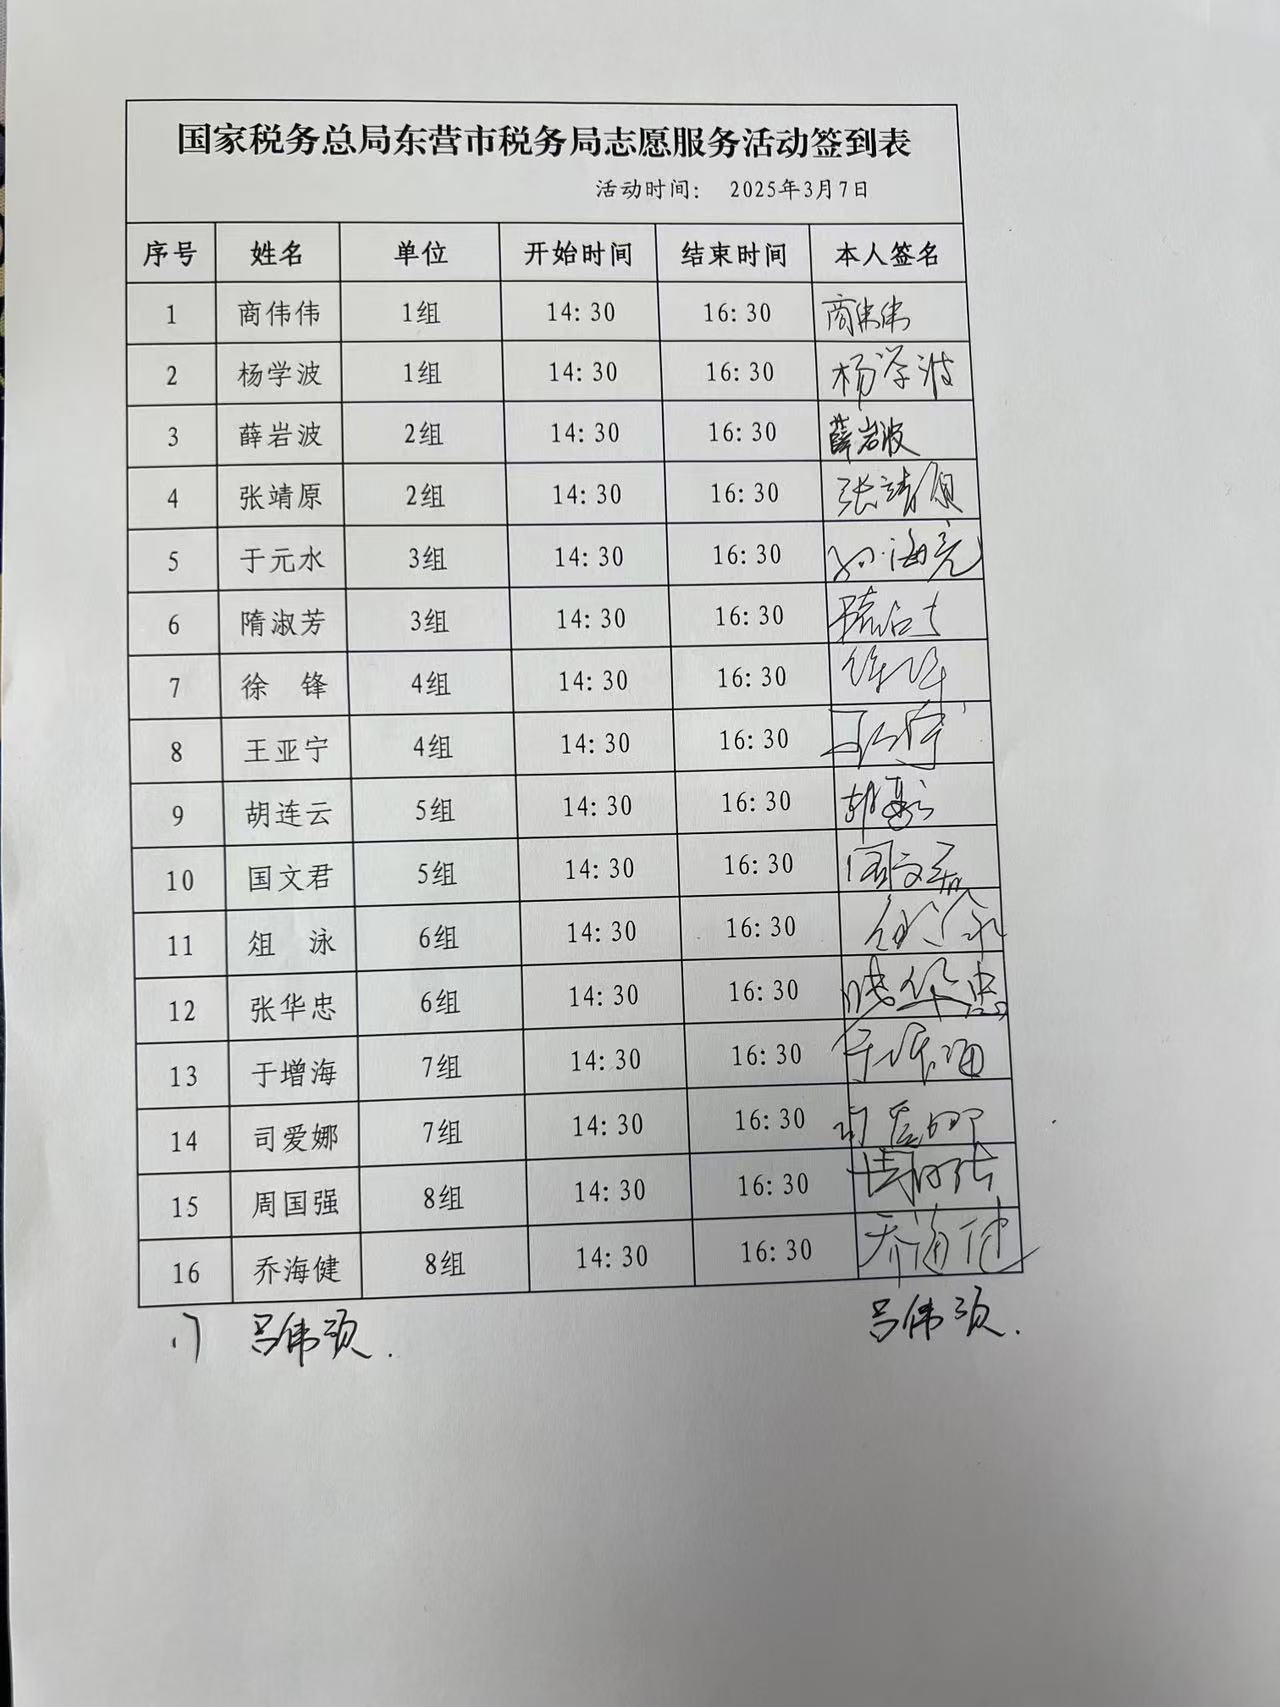 国家税务总局东营市税务局志愿服务活动签到表
活动时间： 2025年3月7日
序号 姓名 单位 开始时间 结束时间 本人签名
1 商伟伟 1组 14:30 16:30 商伟伟
2 杨学波 1组 14:30 16:30 杨学波
3 薛岩波 2组 14:30 16:30 薛岩波
4 张靖原 2组 14:30 16:30 张靖原
5 于元水 3组 14:30 16:30 海亮
6 隋淑芳 3组 14:30 16:30
7 徐 锋 4组 14:30 16:30 徐锋
8 王亚宁 4组 14:30 16:30 王亚宁
9 胡连云 5组 14:30 16:30
10 国文君 5组 14:30 16:30 国文君
11 俎 泳 6组 14:30 16:30
12 张华忠 6组 14:30 16:30 张华忠
13 于增海 7组 14:30 16:30 于增海
14 司爱娜 7组 14:30 16:30 司爱娜
15 周国强 8组 14:30 16:30 周国强
16 乔海健 8组 14:30 16:30 乔海健
17 吕伟 吕伟